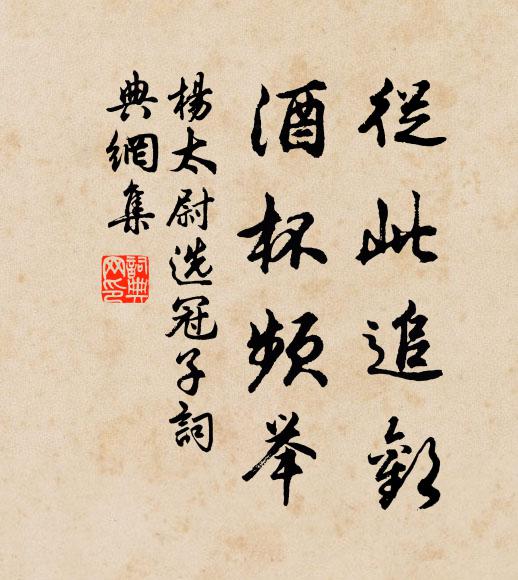 從此追歡
酒杯頻举
楊太尉選冠子詞
典網集
詞典
网印